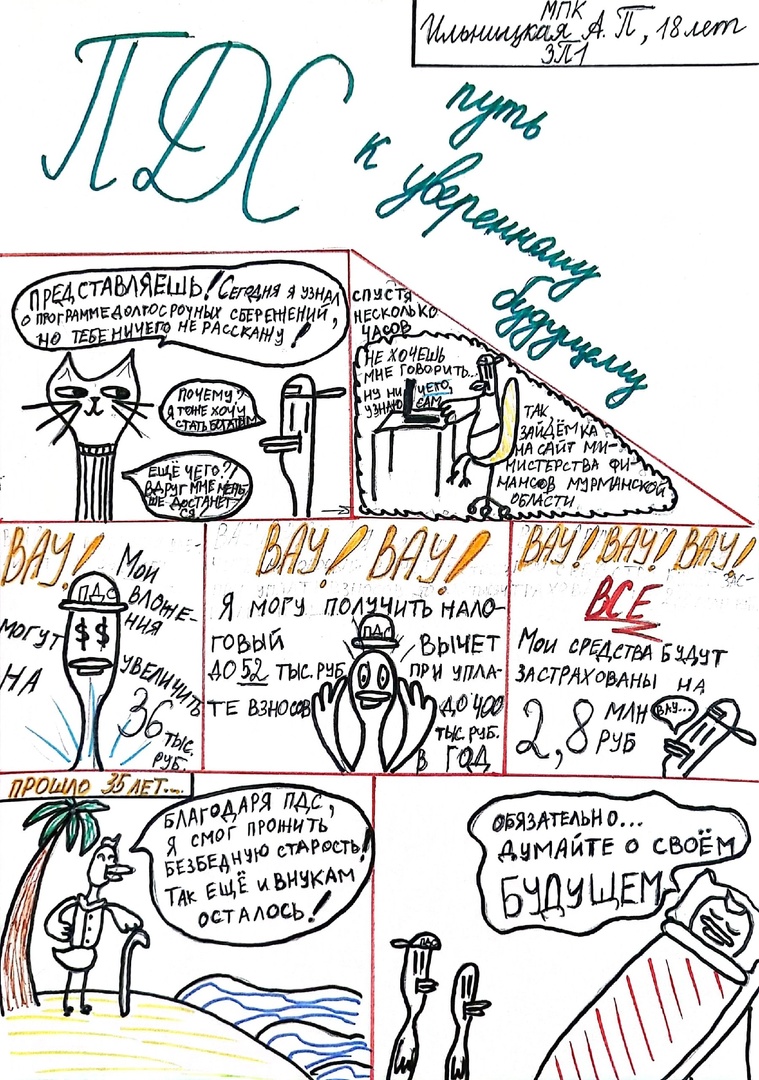 МПК
Ильницкая А. П, 18 лет
ЗП1
ПДС
путь
к уверенному
будущему
ПРЕДСТАВЛЯЕШЬ! СЕГОДНЯ Я УЗНАЛ
О ПРОГРАММЕ ДОЛГОСРОЧНЫХ СБЕРЕЖЕНИЙ,
НО ТЕБЕ НИЧЕГО НЕ РАССКАЖУ!
ПОЧЕМУ?
Я ТОЖЕ ХОЧУ
СТАТЬ БОГАТЫМ
ЕЩЁ ЧЕГО?/
ВДРУГ МНЕ МЕНЬ-
ШЕ ДОСТАНЕТ-
СЯ
СПУСТЯ
НЕСКОЛЬКО
ЧАСОВ
НЕ ХОЧЕШЬ
МНЕ ГОВОРИТЬ...
НУ НИЧЕГО,
УЗНАЮ САМ
ТАК,
ЗАЙДЁМ КА
НА САЙТ МИ-
НИСТЕРСТВА ФИ-
НАНСОВ МУРМАНСКОЙ
ОБЛАСТИ
ВАУ!
МОИ
ВЛОЖЕ-
НИЯ
ПДС
МОГУТ
$ $
УВЕЛИЧИТЬ
НА
36
ТЫС.
РУБ.
ВАУ! ВАУ!
Я МОГУ ПОЛУЧИТЬ НАЛО-
ГОВЫЙ ПДС ВЫЧЕТ
ДО 52 ТЫС. РУБ ПРИ УПЛА-
ТЕ ВЗНОСОВ ДО 400
ТЫС. РУБ.
В ГОД
ВАУ! ВАУ! ВАУ!
ВСЕ
МОИ СРЕДСТВА БУДУТ
ЗАСТРАХОВАНЫ НА
2,8 МЛН
РУБ
ВАУ...
ПРОШЛО 35 ЛЕТ...
БЛАГОДАРЯ ПДС,
Я СМОГ ПРОЖИТЬ
БЕЗБЕДНУЮ СТАРОСТЬ!
ТАК ЕЩЁ И ВНУКАМ
ОСТАЛОСЬ!
ОБЯЗАТЕЛЬНО...
ДУМАЙТЕ О СВОЁМ
БУДУЩЕМ
ПДС